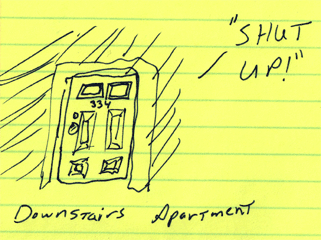 "SHUT
UP!"
334
Downstairs Apartment